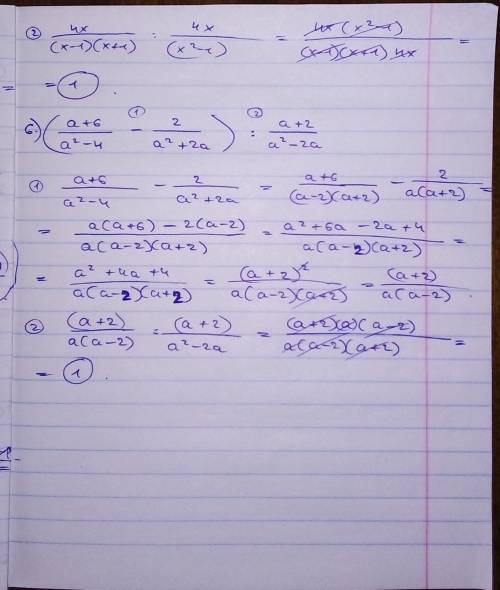 ② 4x/((x-1)(x+1)) : 4x/(x²-1) = 4x(x²-1)/((x-1)(x+1)4x) =
= = 1.
б) ((a+6)/(a²-4) -① 2/(a²+2a)) :② (a+2)/(a²-2a)
① (a+6)/(a²-4) - 2/(a²+2a) = (a+6)/((a-2)(a+2)) - 2/(a(a+2)) =
= (a(a+6)-2(a-2))/(a(a-2)(a+2)) = (a²+6a-2a+4)/(a(a-2)(a+2)) =
= (a²+4a+4)/(a(a-2)(a+2)) = (a+2)²/(a(a-2)(a+2)) = (a+2)/(a(a-2)).
② (a+2)/(a(a-2)) : (a+2)/(a²-2a) = (a+2)(a)(a-2)/(a(a-2)(a+2)) =
= 1.